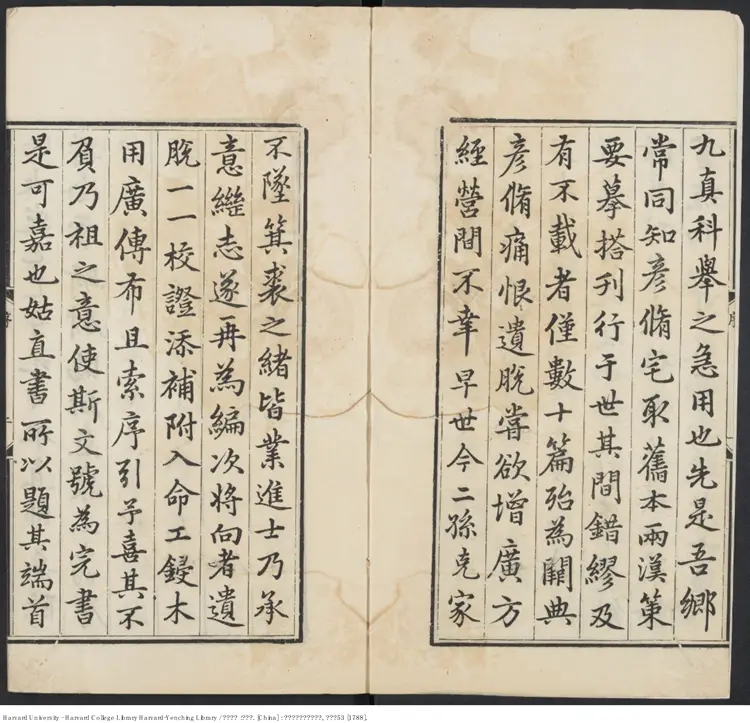 九真科舉之急用也先是吾鄉
常同知彥脩宅取舊本兩漢策
要摹搭刋行于世其間錯繆及
有不載者僅數十篇殆為闕典
彥脩痛恨遺脫嘗欲增廣方
經營間不幸早世今二孫克家
不墜箕裘之緒皆業進士乃承
意繼志遂再為編次將向者遺
脫一一校證添補附入命工鋟木
用廣傳布且索序引予喜其不
負乃祖之意使斯文號為完書
是可嘉也姑直書所以題其端首
序
Harvard University - Harvard College Library Harvard-Yenching Library / ???? :???. [China] : ??????????, ???53 [1788].